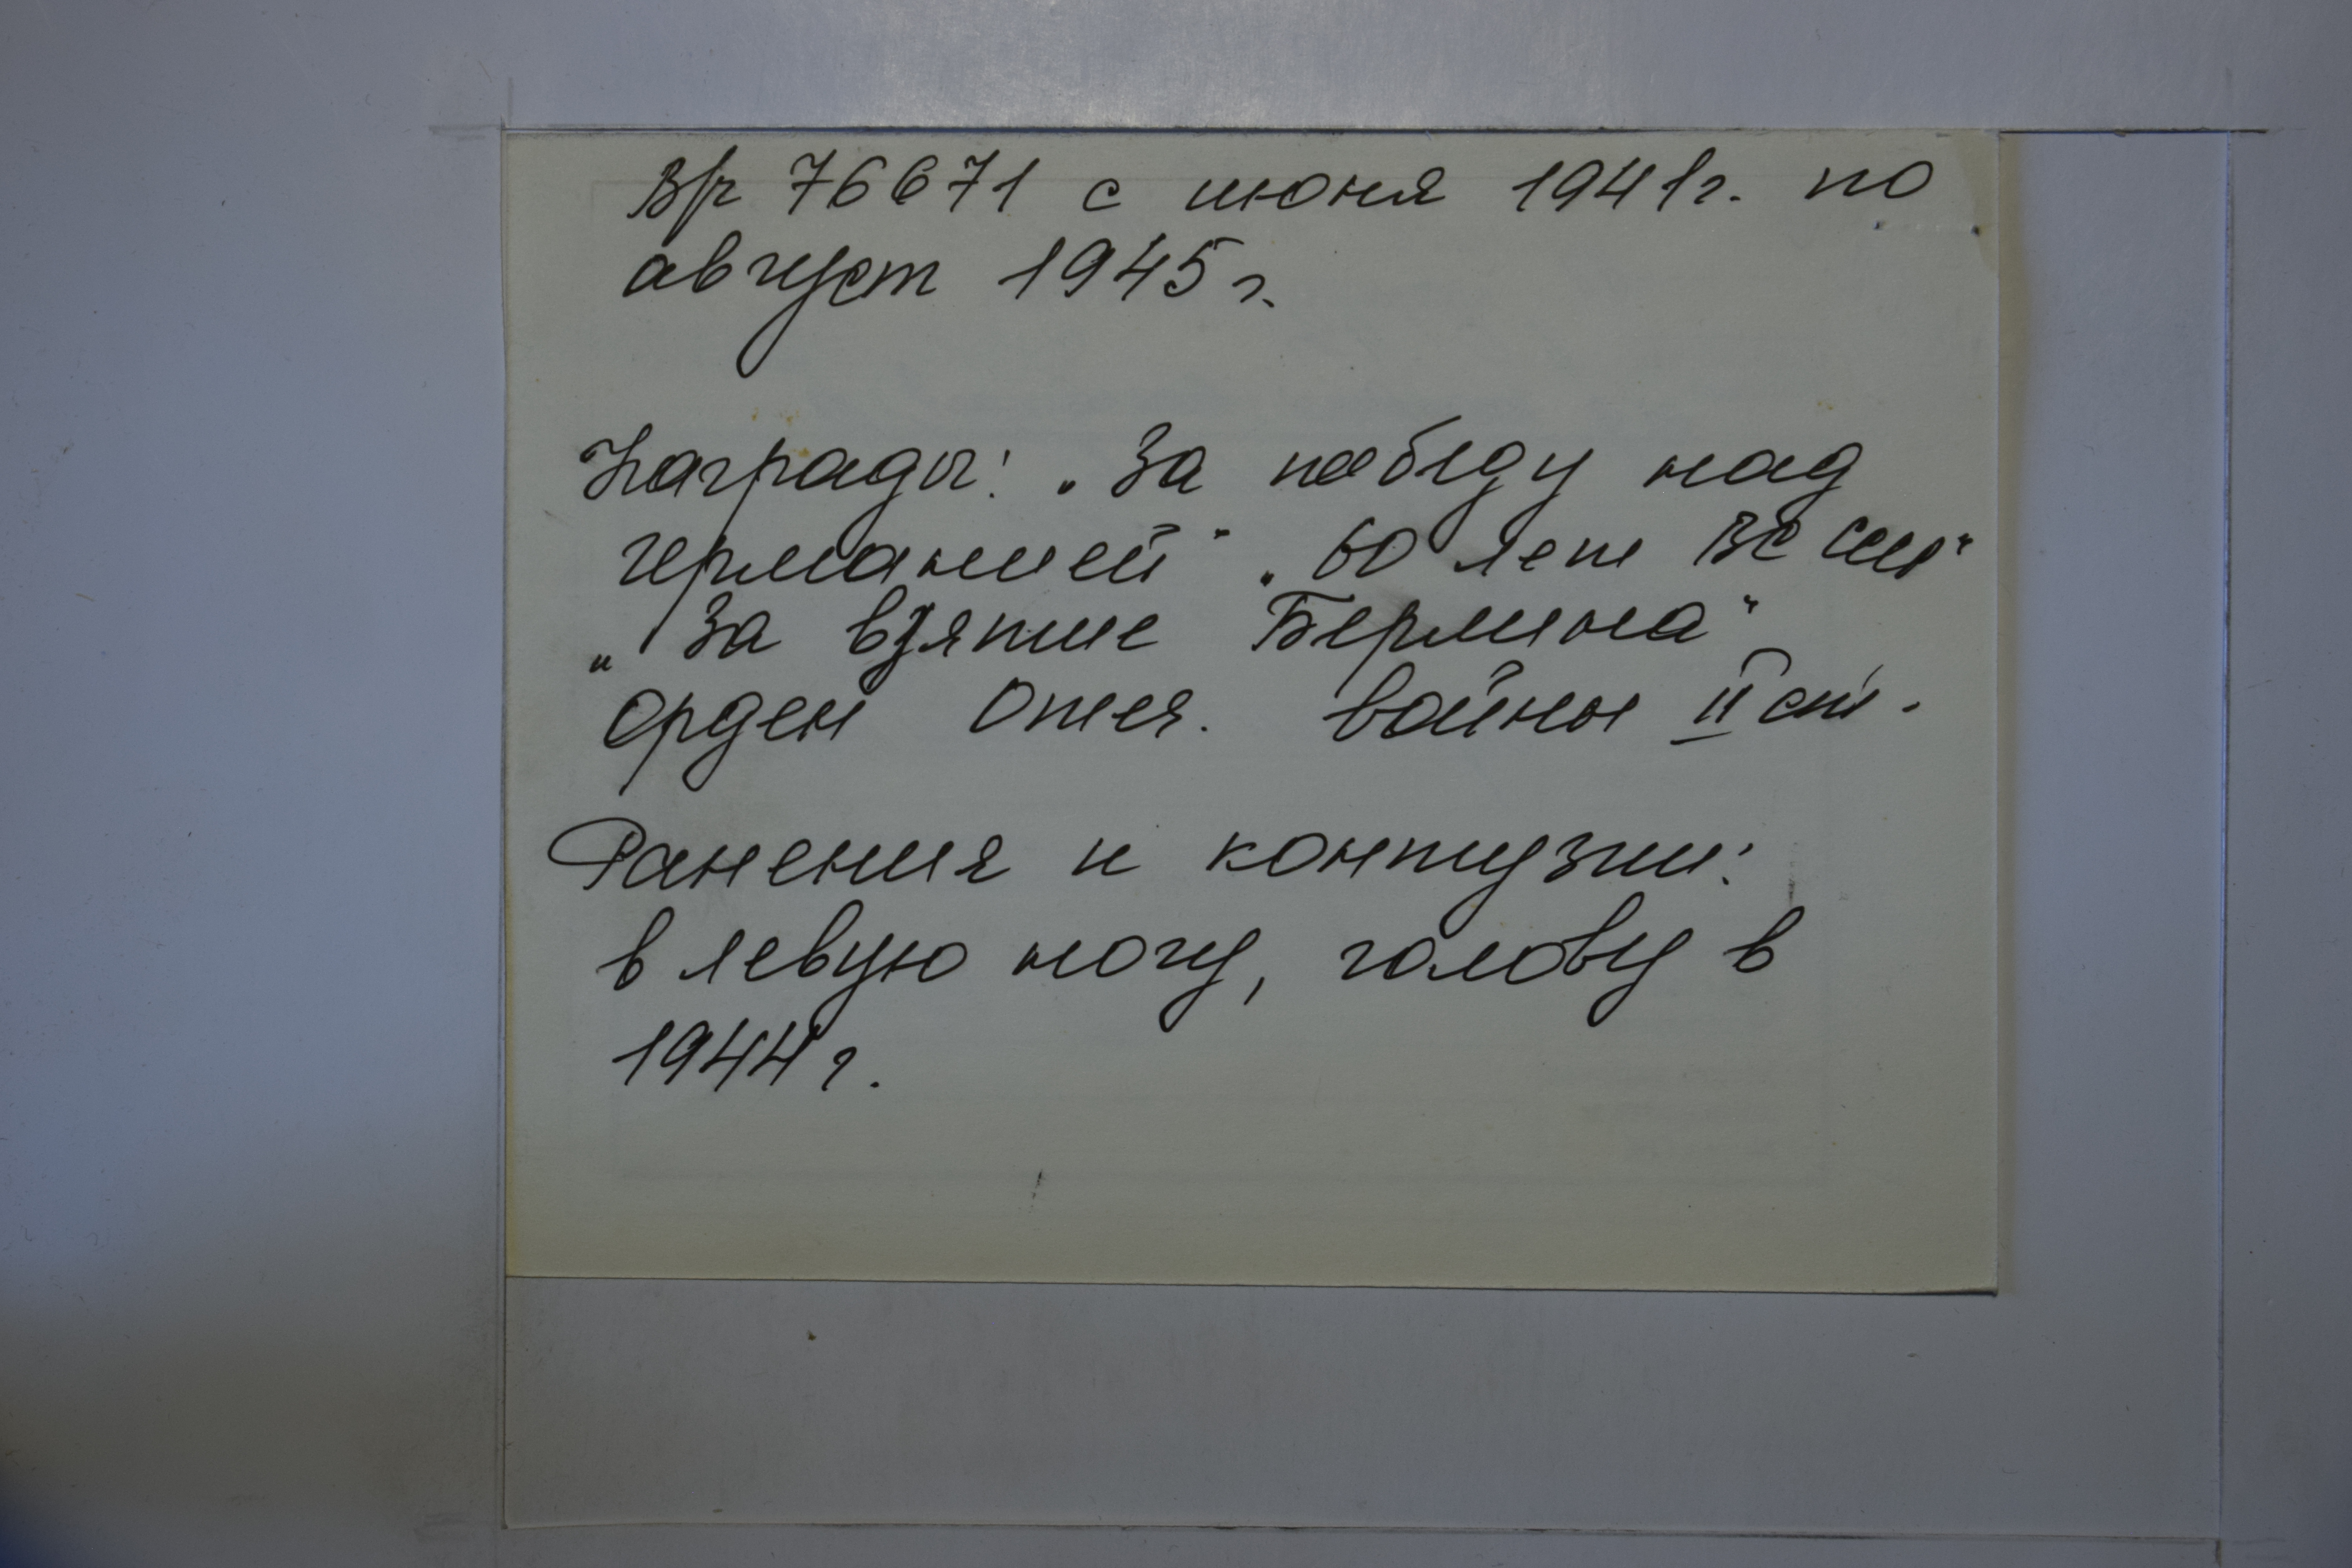 В/ч 76671 с июня 1941г. по
август 1945 г.
Награды: „За победу над
германией" „60 лет ВС СССР"
„За взятие Берлина"
орден Отеч. войны II ст.
Ранения и контузии:
в левую ногу, голову в
1944 г.